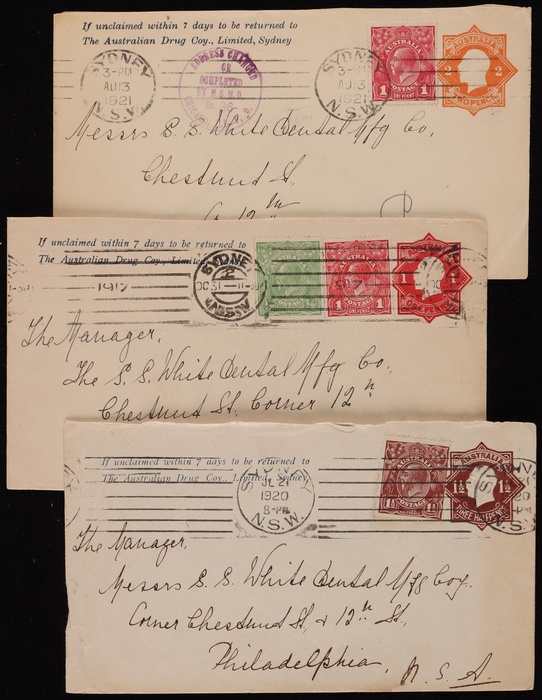 If unclaimed within 7 days to be returned to
The Australian Drug Coy., Limited, Sydney
SYDNEY
3-PM
AU 13
1921
N.S.W.
ADDRESS CHANGED
OR
COMPLETED
BY
SYDNEY
3-PM
AU 13
1921
N.S.W.
AUSTRALIA
1 1
POSTAGE
ONE PENNY
AUSTRALIA
2 2
TWO PENCE
Messrs S. S. White Dental Mfg Co,
Chestnut St.
Co 12th
If unclaimed within 7 days to be returned to
The Australian Drug Coy., Limited
1917
SYDNEY
2
OC 31
N.S.W.
POSTAGE
1 1
ONE PENNY
The Manager,
The S. S. White Dental Mfg Co.,
Chestnut St, Corner 12th
If unclaimed within 7 days to be returned to
The Australian Drug Coy., Limited, Sydney
SYDNEY
JL 21
1920
8-PM
N.S.W.
POSTAGE
1½ 1½
AUSTRALIA
1½ 1½
THREE HALFPENCE
20
-PM
.S.W.
The Manager,
Messrs S. S. White Dental Mfg Coy.
Corner Chestnut St, & 12th St,
Philadelphia, U. S. A.